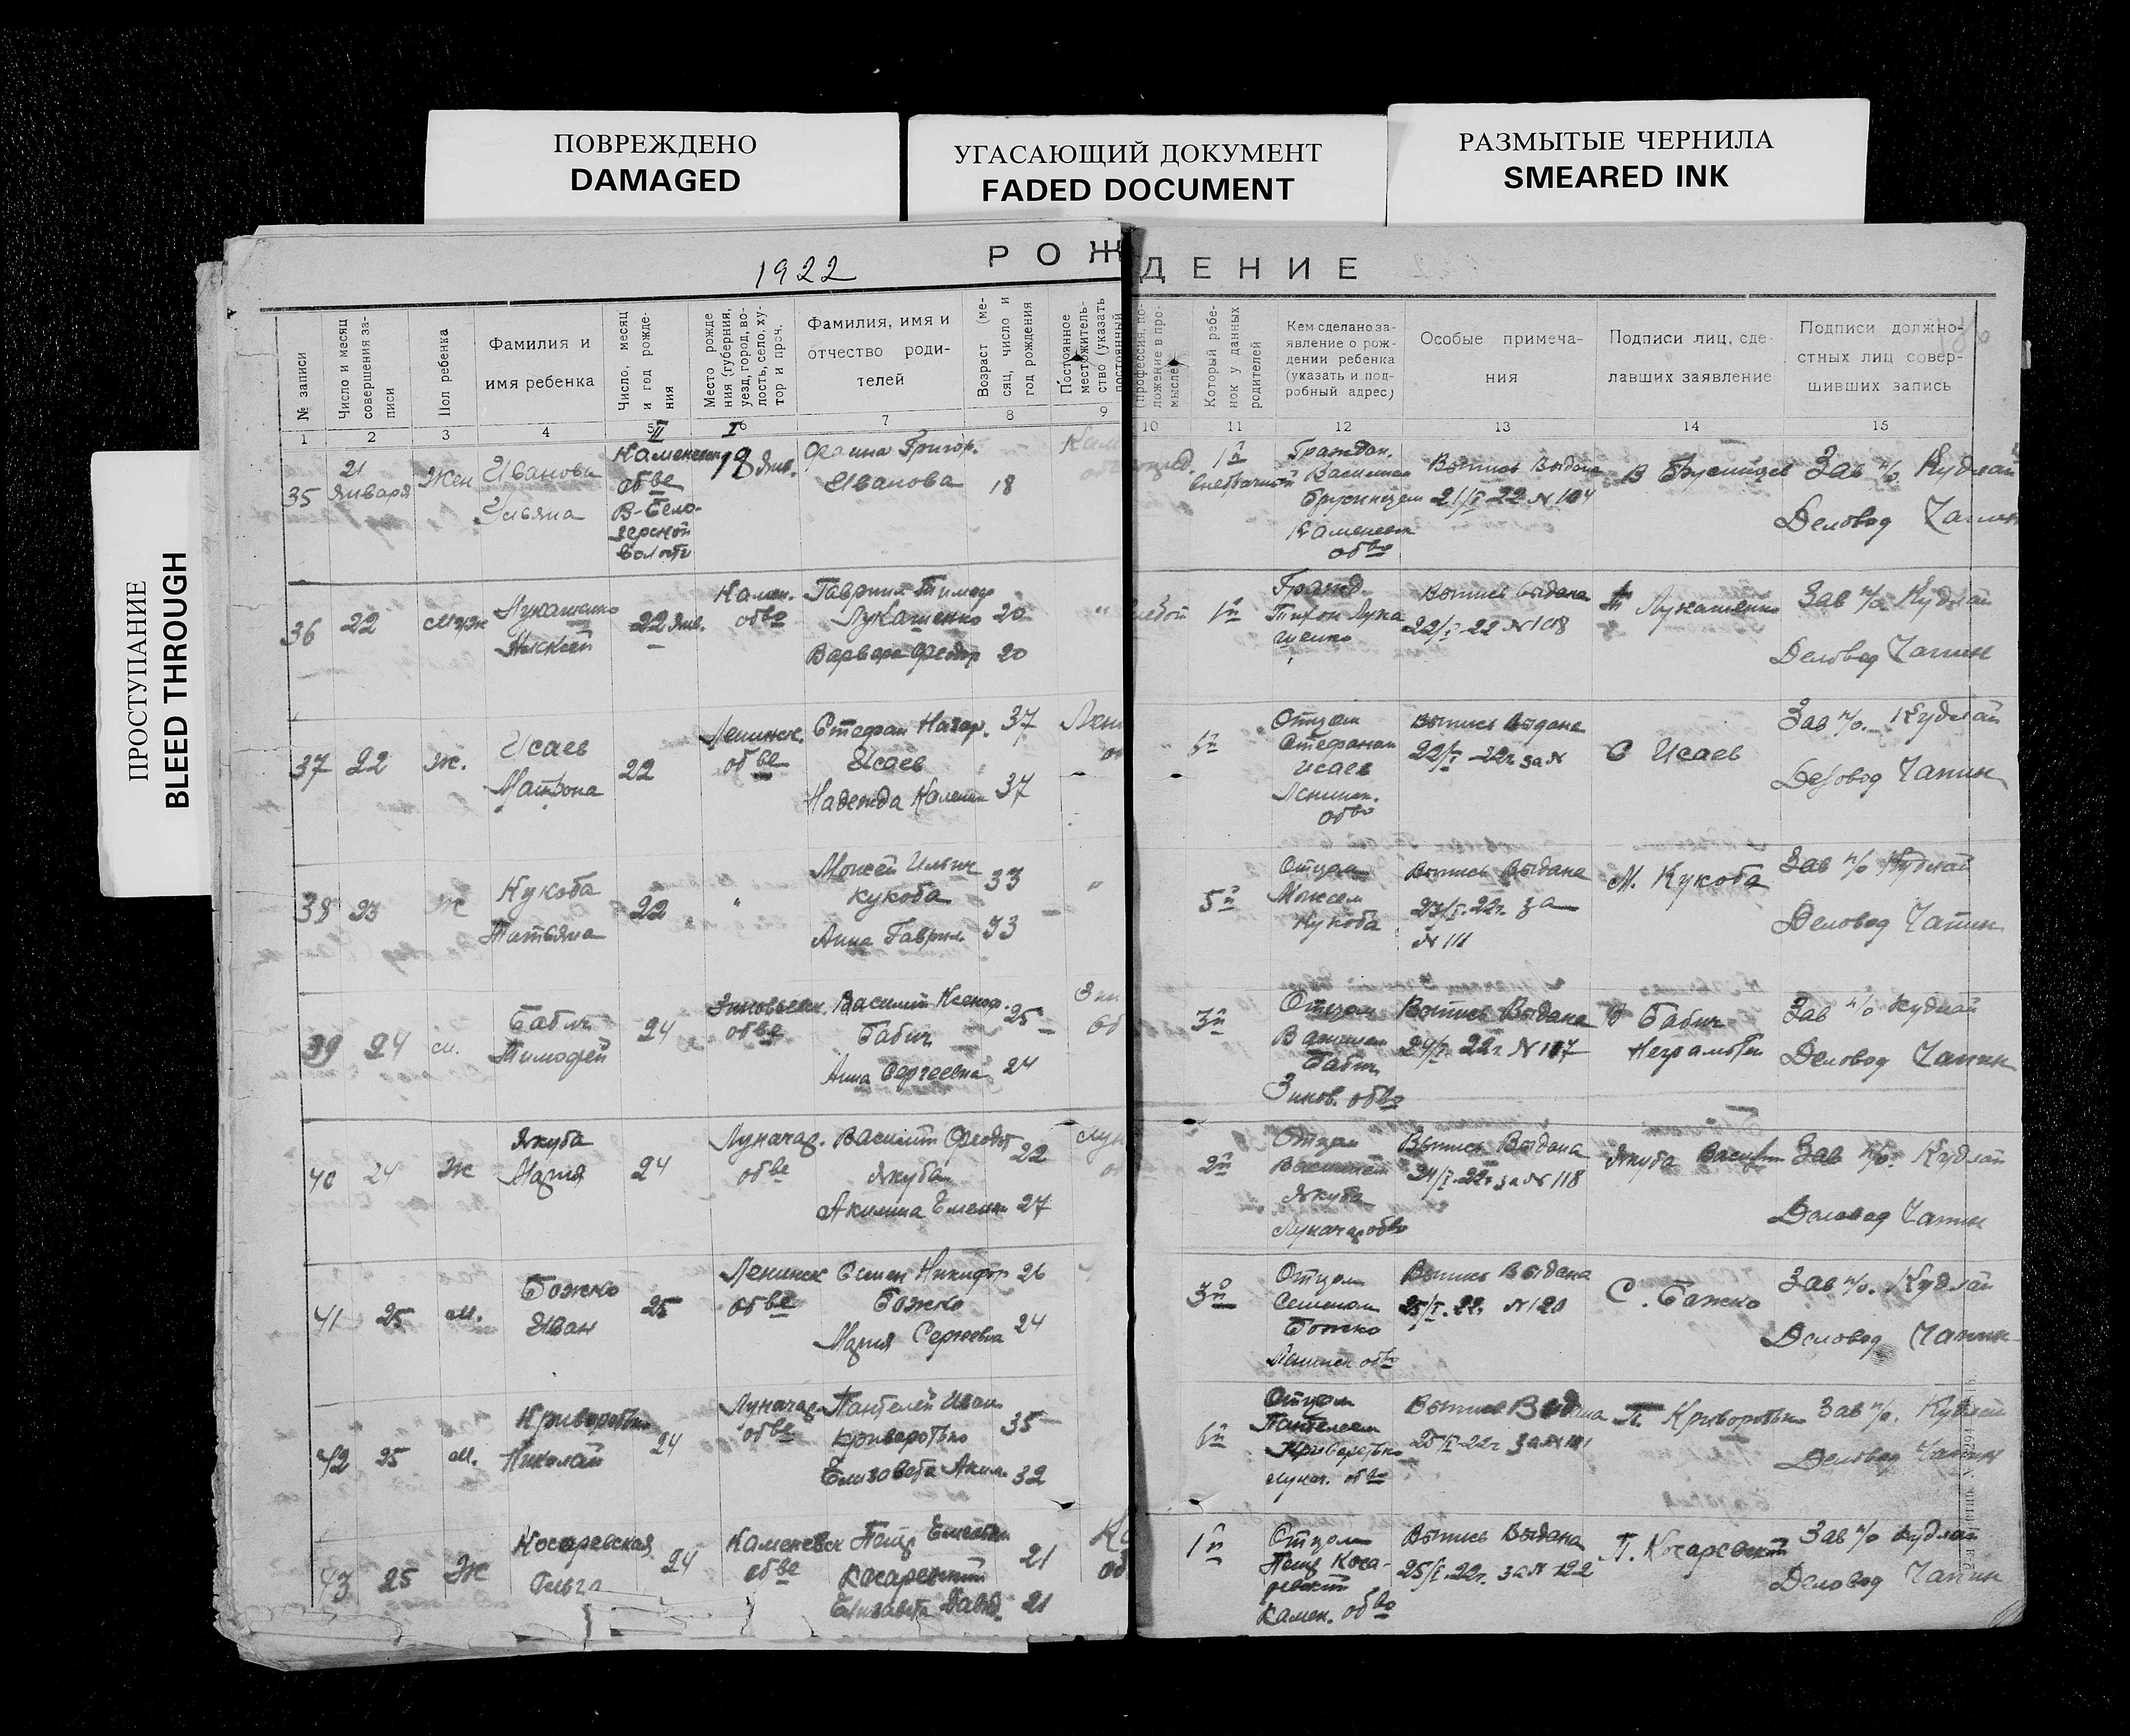 ПОВРЕЖДЕНО
DAMAGED
УГАСАЮЩИЙ ДОКУМЕНТ
FADED DOCUMENT
РАЗМЫТЫЕ ЧЕРНИЛА
SMEARED INK
ПРОСТУПАНИЕ
BLEED THROUGH
РОЖДЕНИЕ
1922
№ записи
Число и месяц совершения записи
Пол ребенка
Фамилия и
имя ребенка
Число, месяц и год рождения
Место рожде
ния (губерния,
уезд, город, во-
лость, село, ху-
тор и проч.
Фамилия, имя и
отчество роди-
телей
Возраст (ме-
сяц, число и
год рождения
Постоянное
местожитель-
ство (указать
постоянный
(профессия, по-
ложение в про-
мысле)
Который ребе-
нок у данных
родителей
Кем сделано за-
явление о рож-
дении ребенка
(указать и под-
робный адрес)
Особые примеча-
ния
Подписи лиц, сде-
лавших заявление
Подписи должно-
стных лиц совер-
шивших запись
1 2 3 4 5 6 7 8 9 10 11 12 13 14 15
35
21
января
Жен
Иванова
Ульяна
Каменск
обве
В-Бело-
зерской
волости
18 янв.
Фаина Григор.
Иванова
18
1й
внебрачный
Граждан.
Василием
Каменск
обво
Выпись Выдана
21/I-22 N 104
Зав п/о. Кудлай
Деловод Чапин
36
22
муж
Лукашенко
22 янв.
Камен.
обве
Гавриил Тимоф
Лукашенко 20
Варвара Федор 20
1й
Гражд.
Тихон Лука
шенко
Выпись выдана
22/I-22 N 108
Лукашенко
Зав п/о. Кудлай
Деловод Чапин
37
22
Ж.
Исаев
Матрона
22
Ленинск.
обве
Стефан Назар. 37
Исаев
Надежда 37
Отцом
Стефаном
Исаев
Ленинск.
обво
Выпись выдана
22/I-22г за N
С Исаев
Зав п/о. Кудлай
Деловод Чапин
38
23
Ж
Кукоба
Татьяна
22
"
Моисей Ильич 33
Кукоба
Анна Гаврил. 33
"
5й
Отцом
Моисеем
Кукоба
Выпись Выдана
23/I.22г. за
N 111
М. Кукоба
Зав п/о Кудлай
Деловод Чапин
39
24
м.
Бабич
Тимофей
24
Зиновьевск
обве
Василий 25
Бабич
Анна Сергеевна 24
3й
Отцом
Василием
Бабич
Зинов. обво
Выпись Выдана
24/I. 22г N 117
Бабич
Неграмотен
Зав п/о Кудлай
Деловод Чапин
40
24
Ж
Якуба
Мария
24
Луначар.
обве
Василий Федот 22
Якуба
Акилина Емельян 27
2й
Отцом
Василием
Якуба
Луначар обво
Выпись Выдана
24/I-22г за N 118
Якуба Василий
Зав п/о. Кудлай
Деловод Чапин
41
25
м.
Божко
Иван
25
Ленинск
обве
Семен Никифор 26
Божко
Мария Сергеевна 24
3й
Отцом
Семеном
Божко
Ленинск обво
Выпись Выдана
25/I. 22г N 120
С. Бажко
Зав п/о. Кудлай
Деловод Чапин
42
25
м.
Криворотько
Николай
24
Луначар
обве
Пантелей Иван 35
Криворотько
Елизавета Аким. 32
6й
Отцом
Пантелеем
Криворотько
Лунач. обво
Выпись Выдана
25/I-22г за N
П. Криворотько
Зав п/о. Кудлай
Деловод Чапин
43
25
Ж
Косаревская
Ольга
24
Каменевск
обве
Петр Емельян
Косаревский 21
Елизавета Давид. 21
1й
Отцом
Петр Коса-
ревский
Камен. обво
Выпись Выдана
25/I-22г. за N 122
П. Косаревский
Зав п/о Кудлай
Деловод Чапин